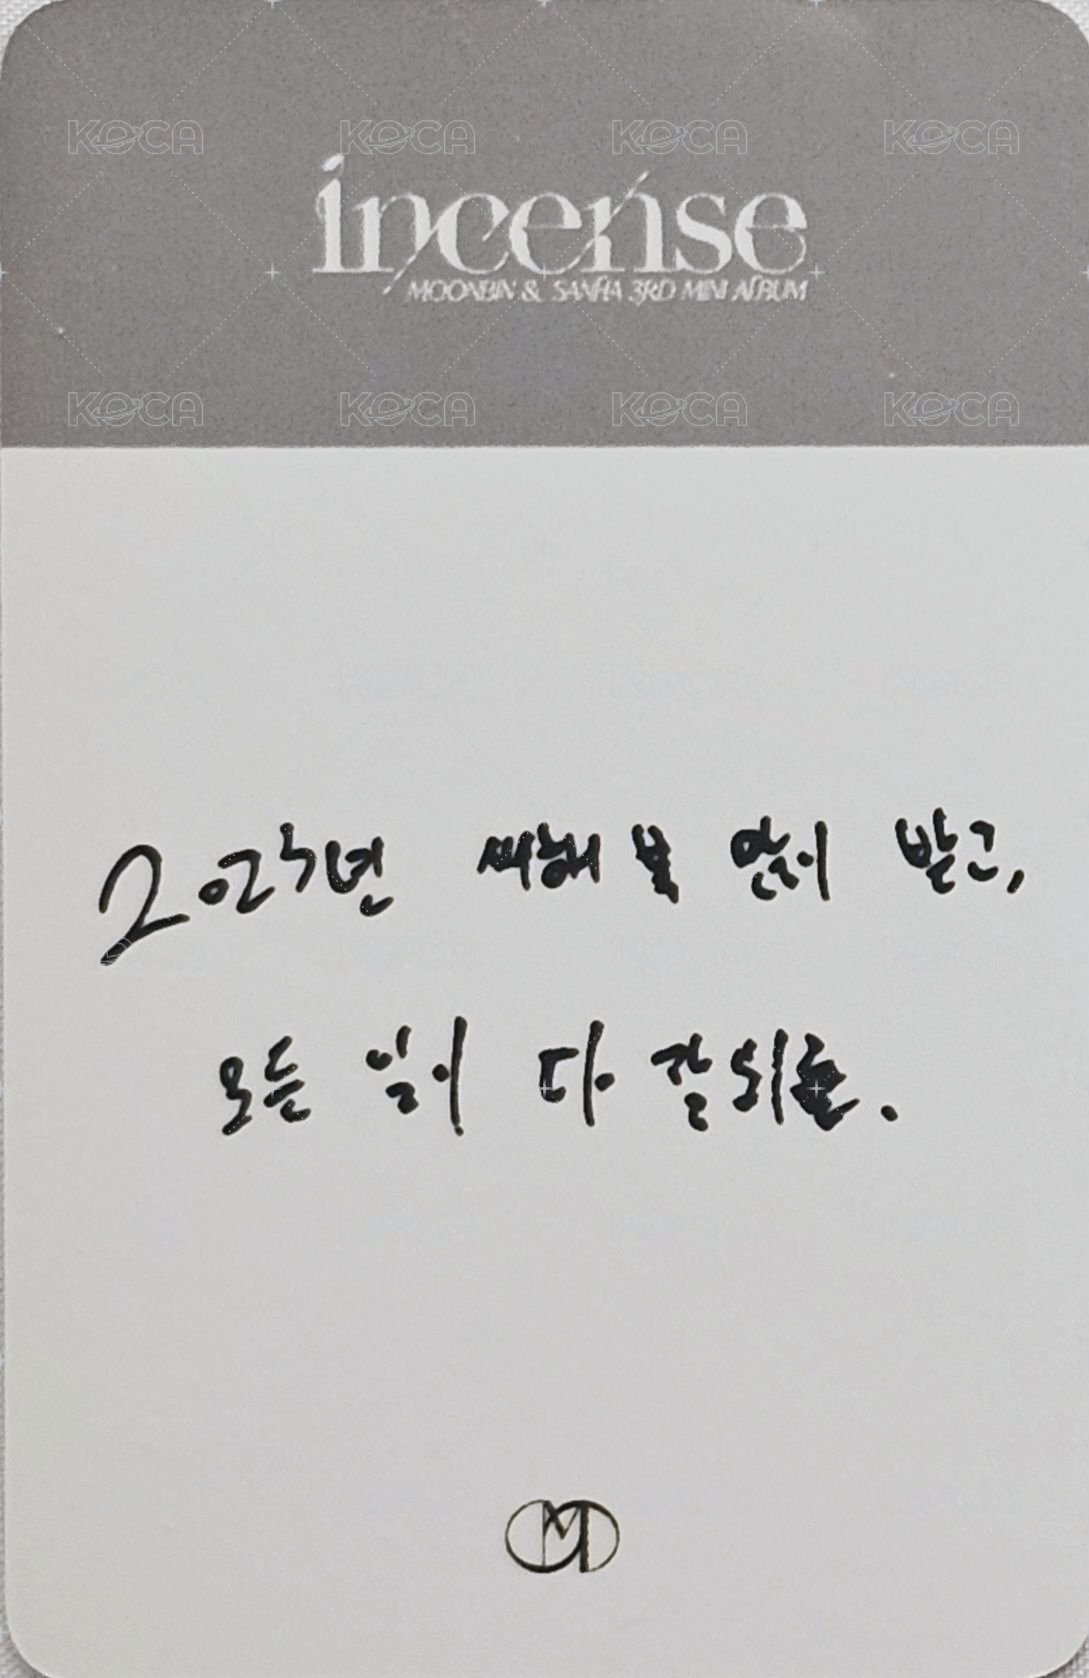 KOCA KOCA KOCA KOCA
incense
MOONBIN & SANHA 3RD MINI ALBUM
KOCA KOCA KOCA KOCA
KOCA KOCA KOCA
2023년 새해 복 많이 받고,
모든 일이 다 잘 되길.